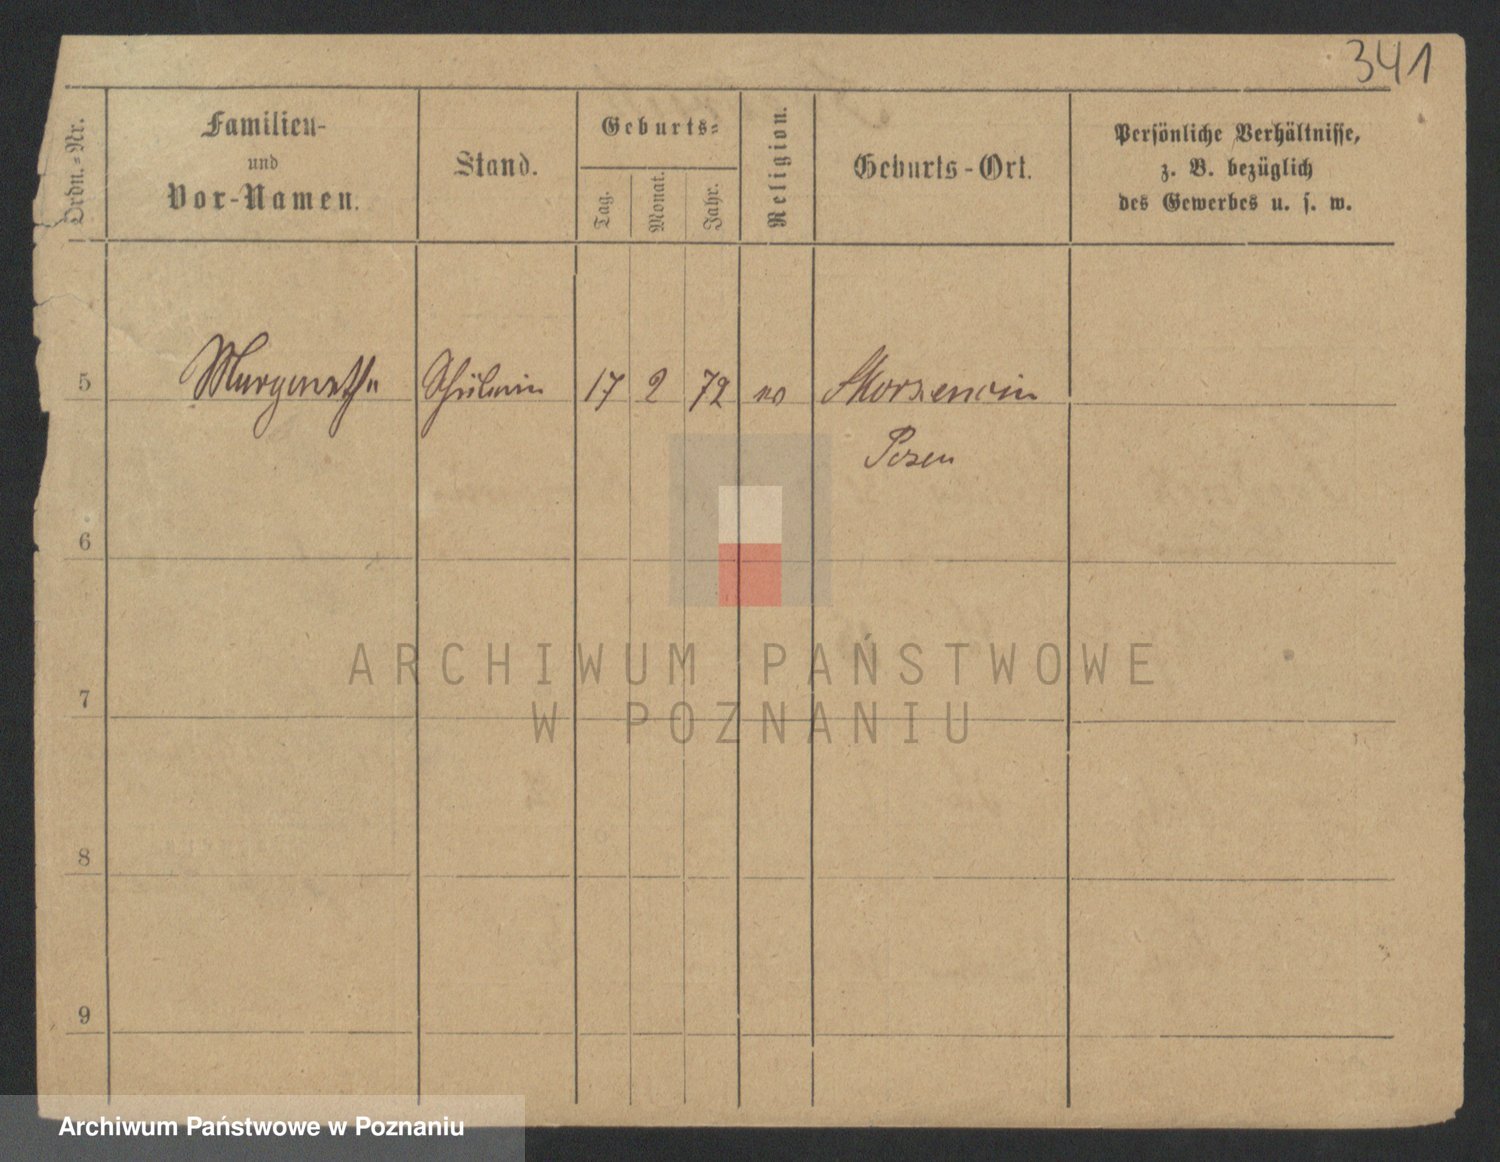 341
Ordn.=Nr.
Familien-
und
Vor-Namen.
Stand.
Geburts=
Tag.
Monat.
Jahr.
Religion.
Geburts-Ort.
Persönliche Verhältnisse,
z. B. bezüglich
des Gewerbes u. s. w.
5 Margarethe Schülerin 17 2 72
Posen
6
7
8
9
ARCHIWUM PAŃSTWOWE
W POZNANIU
Archiwum Państwowe w Poznaniu